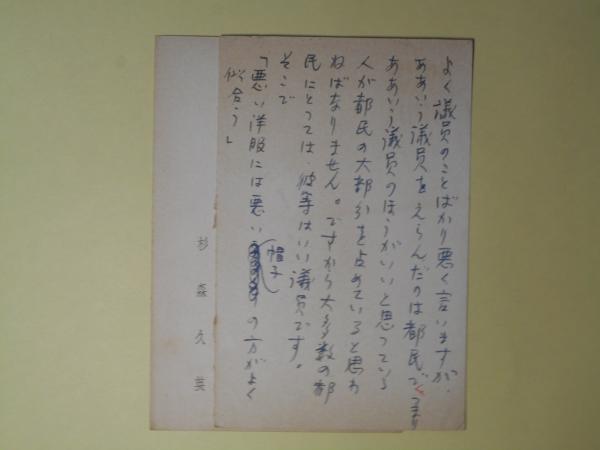 よく議員のことばかり悪く言いますが、
ああいう議員をえらんだのは都民で、つまり
ああいう議員のほうがいいと思っている
人が都民の大部分を占めていると思わ
ねばなりません。ですから大多数の都
民にとっては、彼等はいい議員です。
そこで
「悪い洋服には悪い帽子の方がよく
似合う」
杉森久英